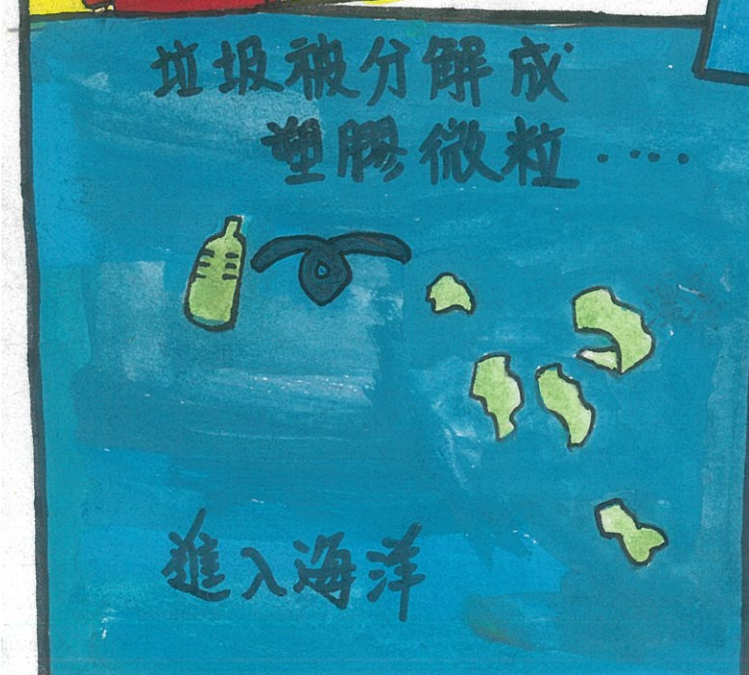 垃圾被分解成
塑膠微粒.....
進入海洋